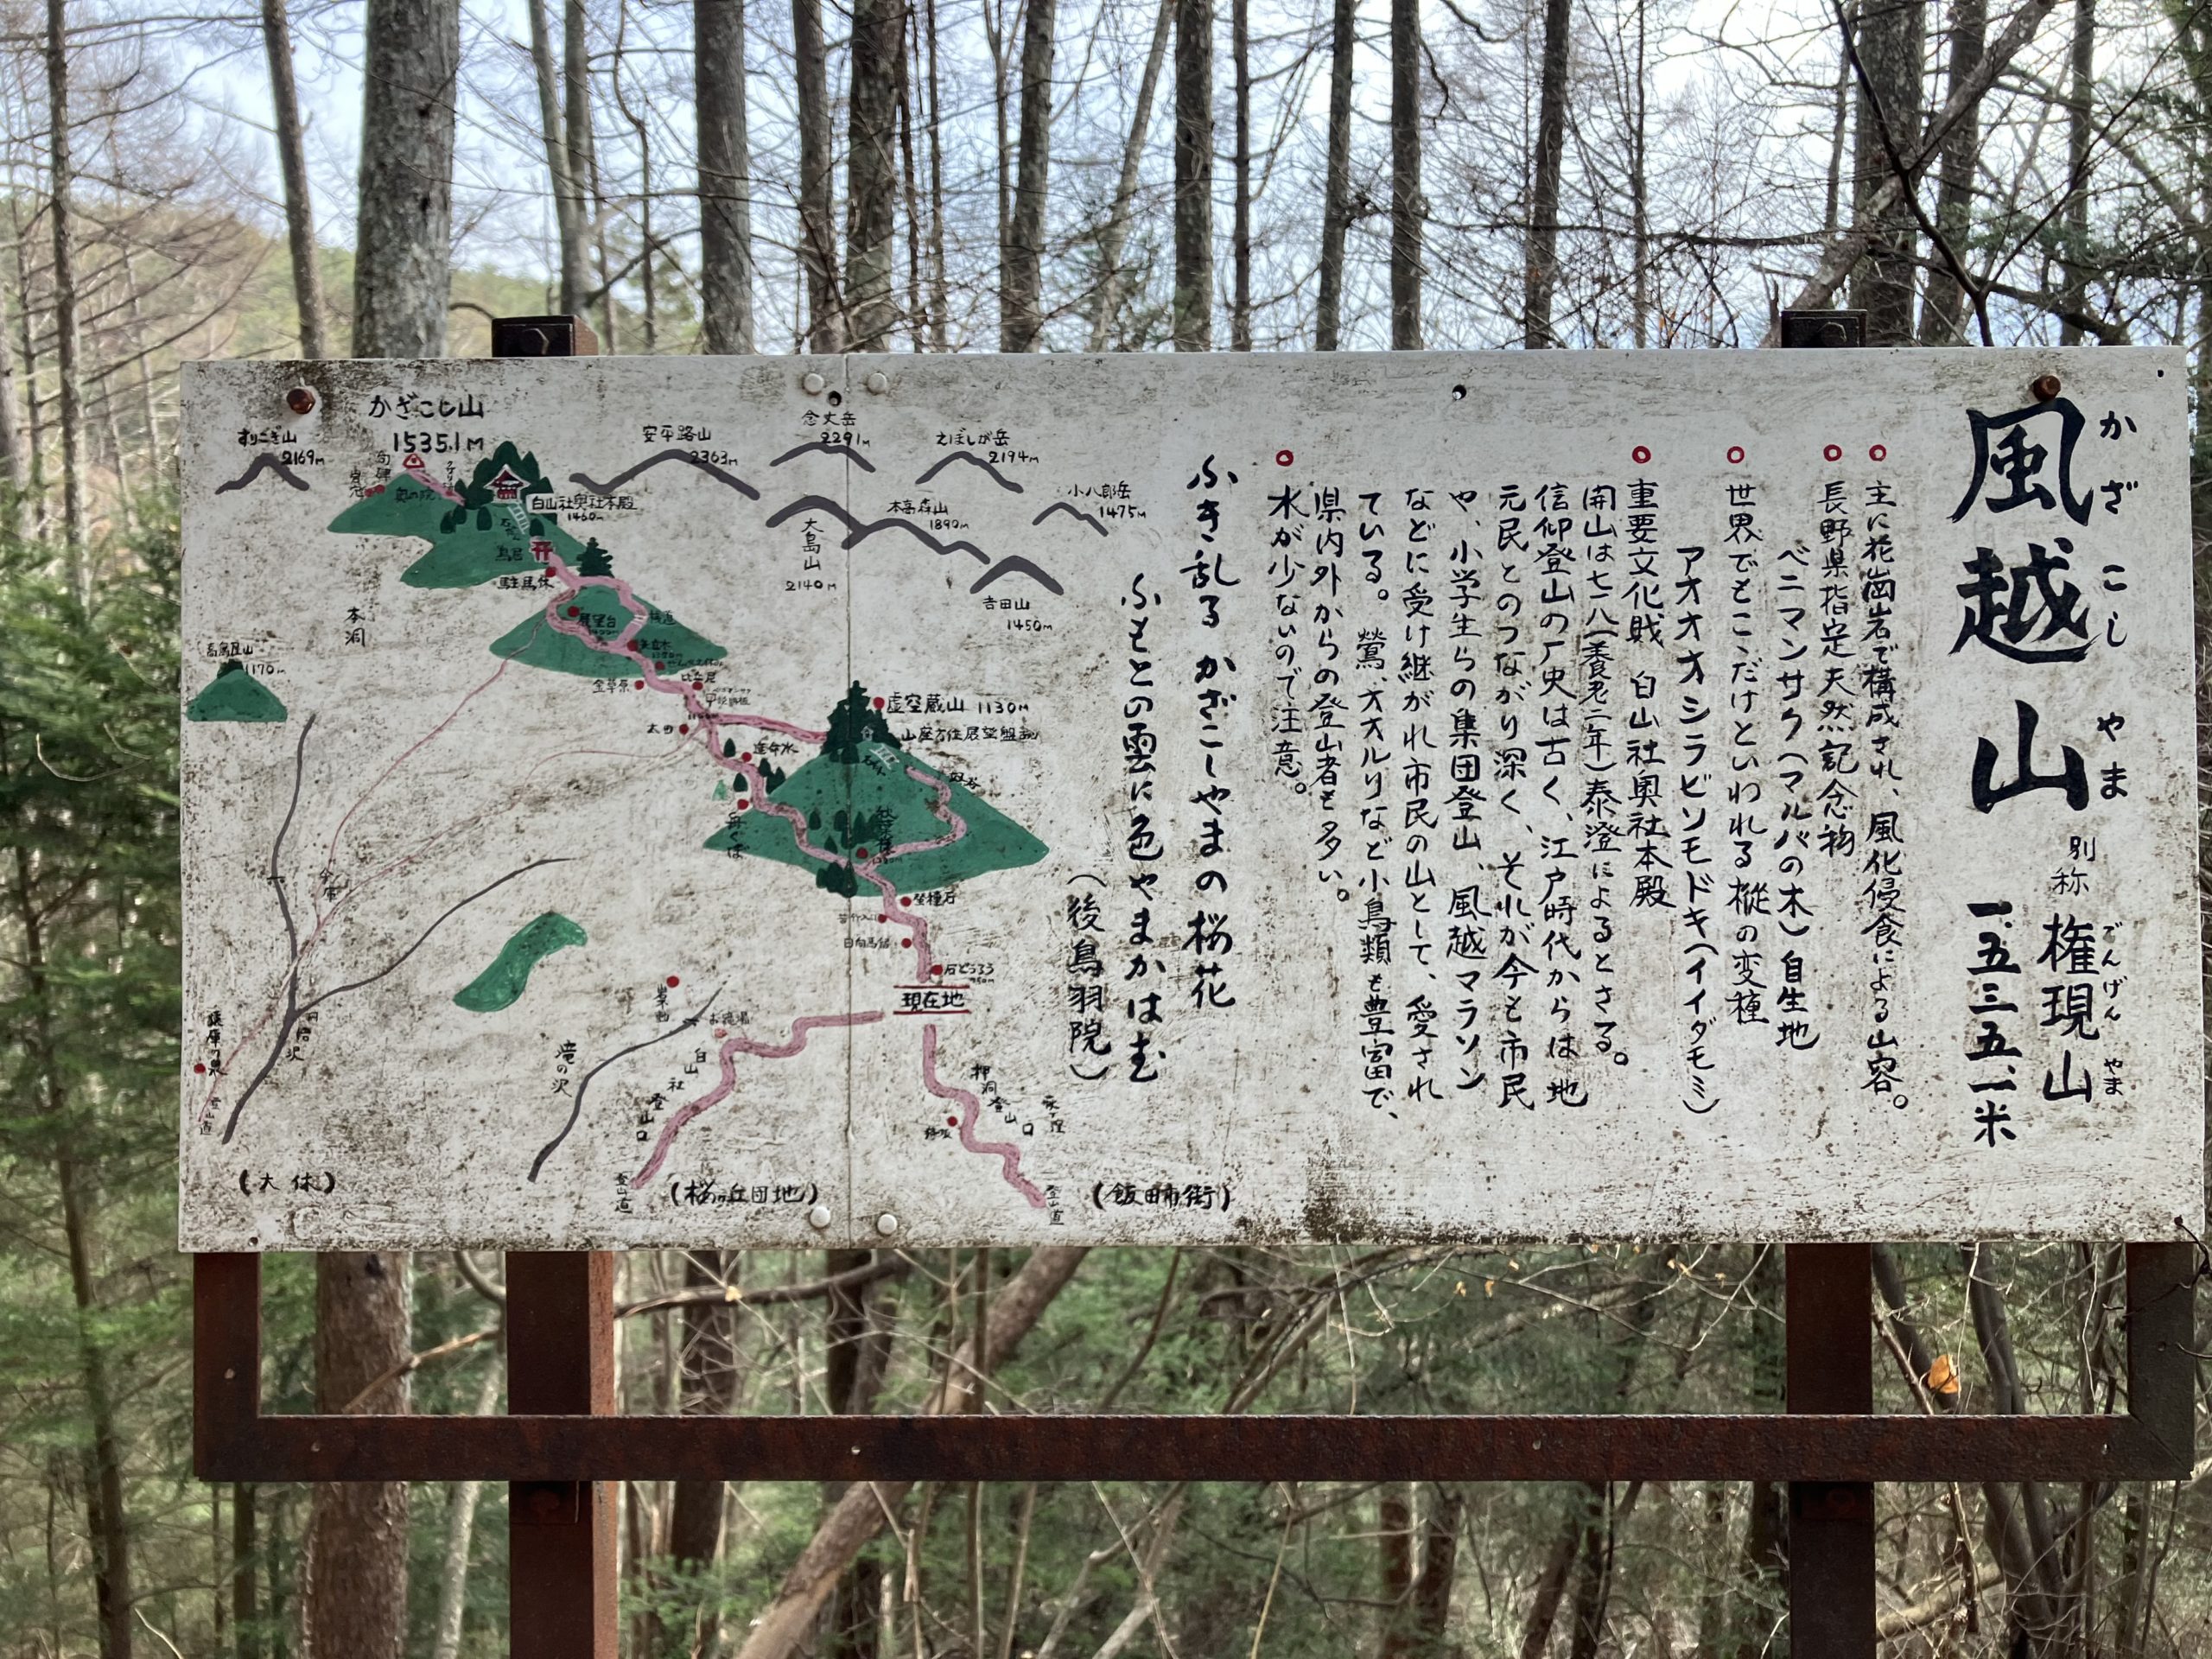 風越山
かざこしやま
別称 権現山
ごんげんやま
一、五三五.一米
主に花崗岩で構成され、風化侵食による山容。
長野県指定天然記念物
ベニマンサク(マルバの木)自生地
世界でもここだけといわれる樅の変種
アオオオシラビソモドキ(イイダモミ)
重要文化財 白山社奥社本殿
開山は七一八(養老二年)泰澄によるとさる。
信仰登山の厂史は古く、江戸時代からは地
元民とのつながり深く、それが今も市民
や、小学生らの集団登山、風越マラソン
などに受け継がれ市民の山として、愛され
ている。鶯、オオルリなど小鳥類も豊富で、
県内外からの登山者も多い。
水が少ないので注意。
ふき乱る かざこしやまの桜花
ふもとの雲に色やまかはむ
(後鳥羽院)
かざこし山
1535.1m
すりこぎ山
2169m
安平路山
2363m
念丈岳
2291m
えぼしが岳
2194m
大島山
2140m
本高森山
1890m
小八郎岳
1475m
吉田山
1450m
句碑
奥の院
白山社奥社本殿
1460m
鳥居
駐馬休
展望台
本洞
高鳥屋山
1170m
矢立木
金草原
虚空蔵山 1130m
山座方位展望盤
延命水
秋葉様
石どうろう
現在地
今庫
円悟沢
猿庫の泉
登山道
滝の沢
白山社登山口
登山道
押洞登山口
登山道
(大休)
(桜ヶ丘団地)
(飯田市街)